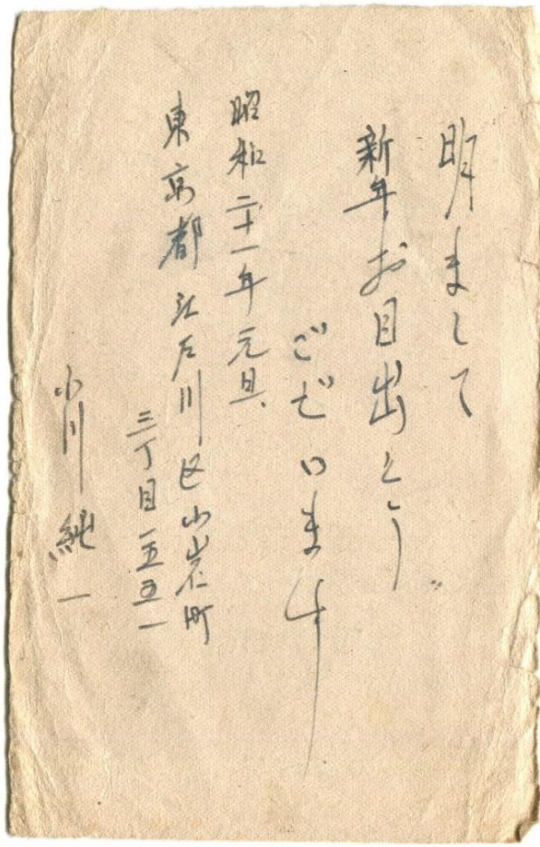 明まして
新年お目出とう
ございます
昭和二十一年元旦、
東京都江戸川区小岩町
三丁目一五五一
小川純一